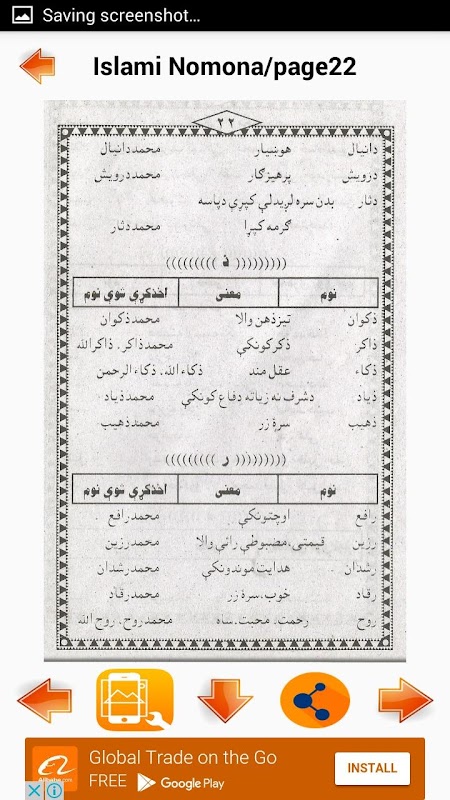 Saving screenshot...
Islami Nomona/page22
٢٢
دانیال هوښیار محمد دانیال
درویش پرهیزګار محمد درویش
دثار بدن سره لږیدلې کپړې دپاسه
ګرمه کپړا محمد دثار
((((((((( ذ )))))))))
نوم معنی اخذکړې شوې نوم
ذکوان تیز ذهن والا محمد ذکوان
ذاکر ذکر کونکې محمد ذاکر، ذاکر الله
ذکاء عقل مند ذکاء الله، ذکاء الرحمن
ذیاد دشرف نه زیاته دفاع کونکې محمد ذیاد
ذهیب سرۀ زر محمد ذهیب
((((((((( ر )))))))))
نوم معنی اخذکړې شوې نوم
رافع اوچتونکې محمد رافع
رزین قیمتی، مضبوطې رائې والا محمد رزین
رشدان هدایت موندونکې محمد رشدان
رقاد خوب، سرۀ زر محمد رقاد
روح رحمت، محبت، ساه محمد روح، روح الله
Global Trade on the Go
FREE Google Play
INSTALL